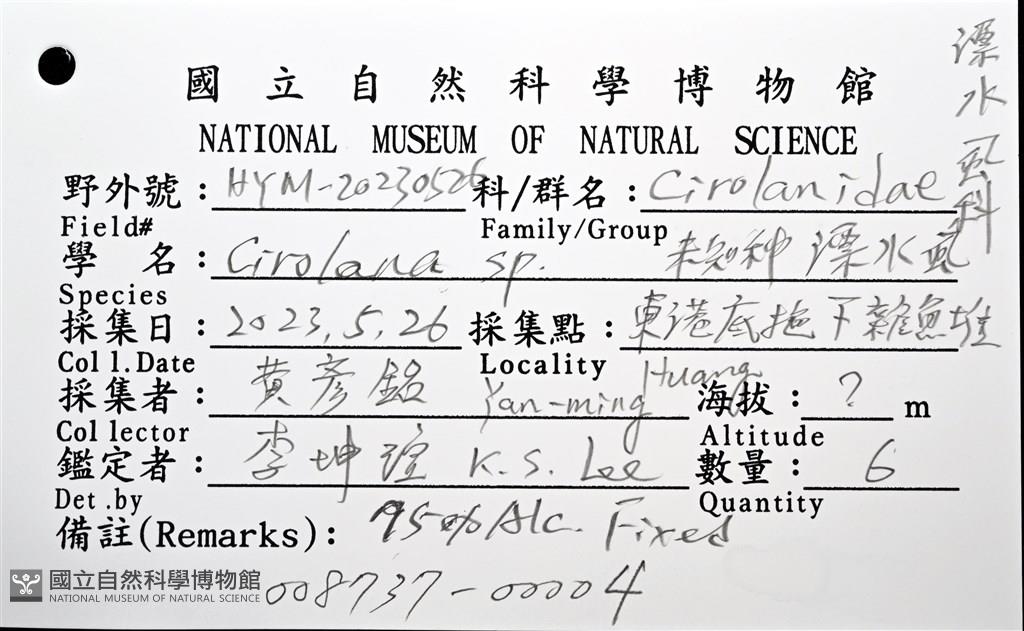 國立自然科學博物館
NATIONAL MUSEUM OF NATURAL SCIENCE
漂水虱科
野外號：HYM-20230526 科/群名：Cirolanidae
Field# Family/Group
學名：Cirolana sp. 未知种 漂水虱
Species
採集日：2023.5.26 採集點：東港底拖下雜魚堆
Coll.Date Locality
採集者：黃彥銘 Yan-ming Huang 海拔：? m
Collector Altitude
鑑定者：李坤瑄 K.S. Lee 數量：6
Det.by Quantity
備註(Remarks)：95% Alc. Fixed
008737-00004
國立自然科學博物館
NATIONAL MUSEUM OF NATURAL SCIENCE